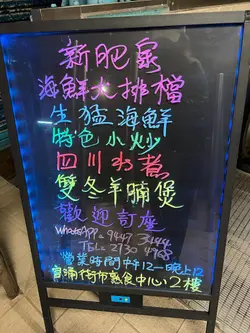 新肥泉
海鮮大排檔
生猛海鮮
特色小炒
四川水煮
雙冬羊腩煲
歡迎訂座
WhatsApp: 9447 3444
TEL: 2130 4768
營業時間中午12-晚上12
街市熟食中心2樓